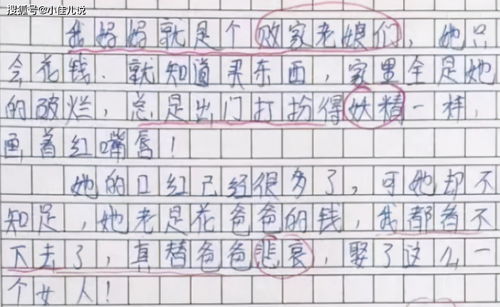 搜狐号@小佳儿说
我妈妈就是个败家老娘们,她只
会花钱.就知道买东西,家里全是她
的破烂,总是出门打扮得妖精一样,
画着红嘴唇!
她的口红已经很多了,可她却不
知足,她老是花爸爸的钱,我都看不
下去了,真替爸爸悲哀,娶了这么一
个女人!